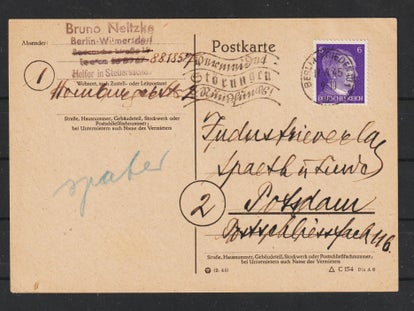 Bruno Neitzke
Berlin-Wilmersdorf
Helfer in Steuersachen
Absender:
881857
Wohnort, auch Zustell- oder Leitpostamt
Straße, Hausnummer, Gebäudeteil, Stockwerk oder
Postschließfachnummer;
bei Untermietern auch Name des Vermieters
1
später
Postkarte
Vermeidet
Störungen
Rundfunks!
BERLIN
6
DEUTSCHES REICH
Industrieverlag
Spaeth u. Linde
2
Potsdam
Postschliessfach 116.
Straße, Hausnummer, Gebäudeteil, Stockwerk oder Postschließfachnummer;
bei Untermietern auch Name des Vermieters
C 154 Din A 6